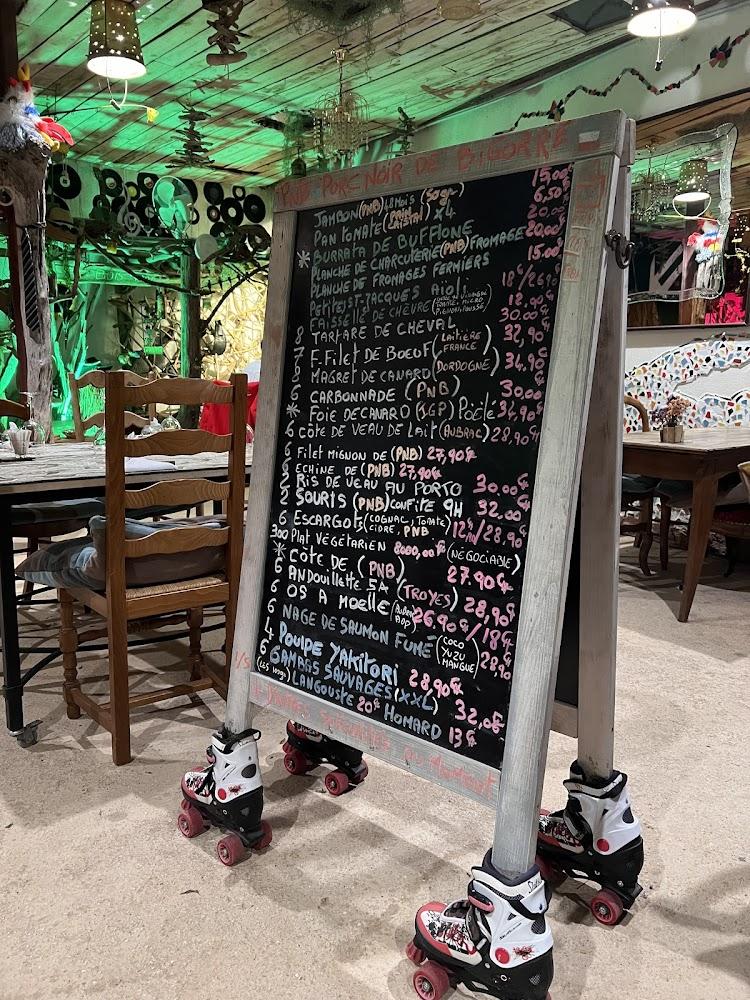 PNB = PORC NOIR DE BIGORRE
JAMBON (PNB) 48 MOIS (80gr) 15,00€
PAN TOMATE (PAIN CRISTAL) X4 6,50€
BURRATA DE BUFFLONE 20,00
* PLANCHE DE CHARCUTERIE (PNB) FROMAGE 20,00€
PLANCHE DE FROMAGES FERMIERS 15,00€
Petites ST-JACQUES Aïoli 18€/26,90
FAISSELLE DE CHÈVRE 12.90€
TARTARE DE CHEVAL 30.00€
8 F.FILET DE BOEUF (LAITIÈRE FRANCE) 32,90€
7 MAGRET DE CANARD (DORDOGNE) 34,90€
6 CARBONNADE (PNB) 30.00€
* FOIE DE CANARD (IGP) Poêlé 34,90€
6 CÔTE DE VEAU DE LAIT (AUBRAC) 28,90€
6 FILET MIGNON DE (PNB) 27,90€
6 ECHINE DE (PNB) 27,90€
RIS DE VEAU AU PORTO 30.00€
2 SOURIS (PNB) CONFITE 9H 32.00€
6 ESCARGOTS (COGNAC, TOMATE, CIDRE, PNB 12€/28,90€
300 PLAT VÉGÉTARIEN 8000,00€ (NÉGOCIABLE)
* CÔTE DE, (PNB) 27.90€
6 ANDOUILLETTE 5A (TROYES) 28,90€
6 OS A MOELLE 26,90€/18€
6 NAGE DE SAUMON FUMÉ (COCO YUZU MANGUE) 28,90
4 POULPE YAKITORI 28,90€
6 GAMBAS SAUVAGES (XXL) 32,0€
LANGOUSTE 20€ HOMARD 13€